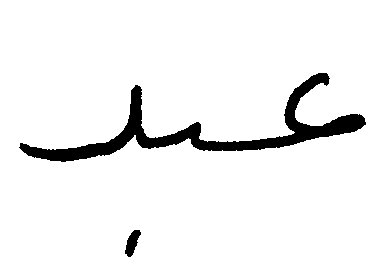 عبد